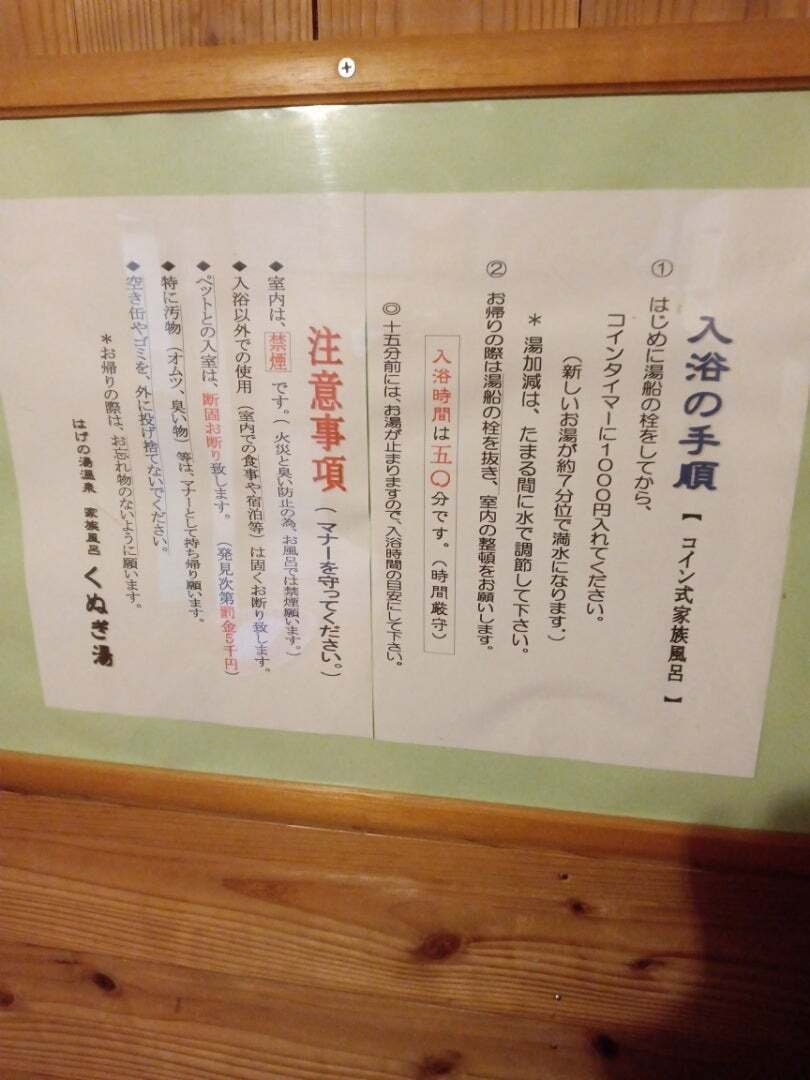 入浴の手順【コイン式家族風呂】
① はじめに湯船の栓をしてから、
コインタイマーに1000円入れてください。
（新しいお湯が約7分位で満水になります.）
＊ 湯加減は、たまる間に水で調節して下さい。
② お帰りの際は湯船の栓を抜き、室内の整頓をお願いします。
入浴時間は五〇分です。（時間厳守）
◎ 十五分前には、お湯が止まりますので、入浴時間の目安にして下さい。
注意事項（マナーを守ってください。）
◆ 室内は、禁煙です。（火災と臭い防止の為、お風呂では禁煙願います。）
◆ 入浴以外での使用（室内での食事や宿泊等）は固くお断り致します。
◆ ペットとの入室は、断固お断り致します。（発見次第罰金5千円）
◆ 特に汚物（オムツ、臭い物）等は、マナーとして持ち帰り願います。
◆ 空き缶やゴミを、外に投げ捨てないでください。
＊お帰りの際は、お忘れ物のないように願います。
はげの湯温泉 家族風呂 くぬぎ湯